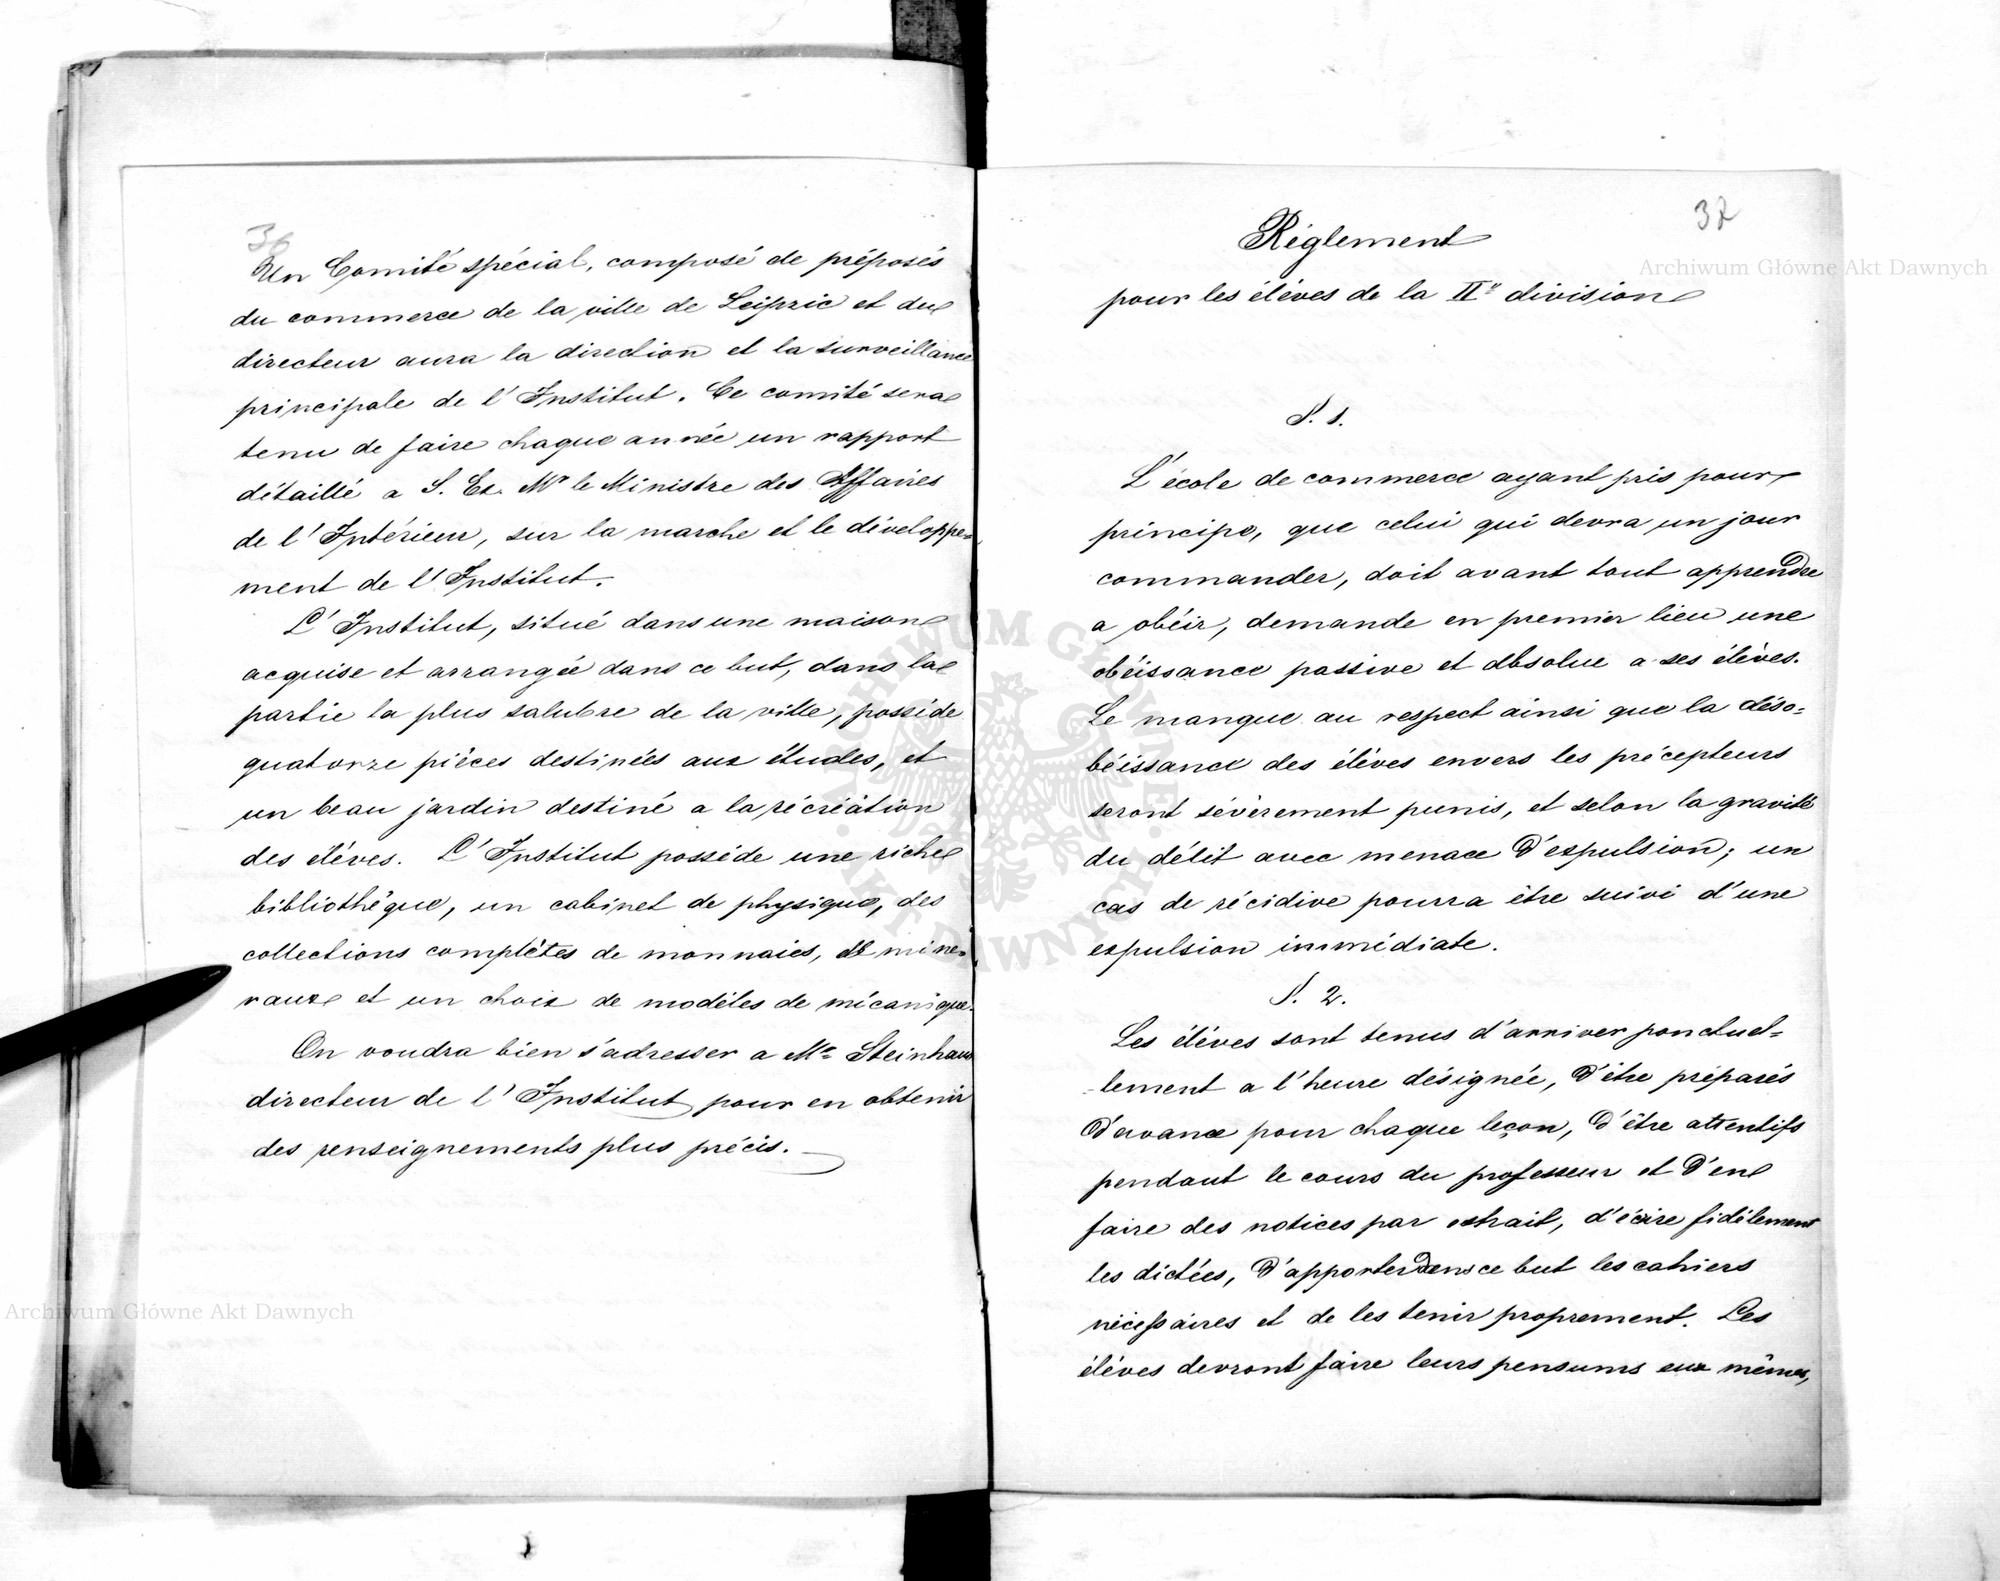 36
Un Comité spécial, composé de préposés
du commerce de la ville de Leipzic et du
directeur aura la direction et la surveillance
principale de l'Institut. Ce comité sera
tenu de faire chaque année un rapport
détaillé a S. Ex. Mr le Ministre des Affaires
de l'Intérieur, sur la marche et le développe=
ment de l'Institut.
L'Institut, situé dans une maison
acquise et arrangée dans ce but, dans la
partie la plus salubre de la ville, posséde
quatorze pièces destinées aux études, et
un beau jardin destiné a la récréation
des élèves. L'Institut posséde une riche
bibliothêque, un cabinet de physique, des
collections complètes de monnaies, de mine=
raux et un choix de modèles de mécanique.
On voudra bien s'adresser a Mr Steinhaus
directeur de l'Institut pour en obtenir
des renseignements plus précis.
37
Réglement
pour les élèves de la IIe division
S. 1.
L'école de commerce ayant pris pour
principe, que celui qui devra un jour
commander, doit avant tout apprendre
a obéir, demande en premier lieu une
obéissance passive et absolue a ses élèves.
Le manque au respect ainsi que la déso=
béissance des élèves envers les précepteurs
seront sévèrement punis, et selon la gravité
du délit avec menace d'expulsion; un
cas de récidive pourra être suivi d'une
expulsion immédiate.
S. 2.
Les élèves sont tenus d'arriver ponctuel=
lement a l'heure désignée, d'être préparés
d'avance pour chaque leçon, d'être attentifs
pendant le cours du professeur et d'en
faire des notices par extrait, d'écire fidèlement
les dictées, d'apporter dans ce but les cahiers
nécessaires et de les tenir proprement. Les
élèves devront faire leurs pensums eux mêmes,
Archiwum Główne Akt Dawnych
Archiwum Główne Akt Dawnych
ARCHIWUM GŁÓWNE AKT DAWNYCH